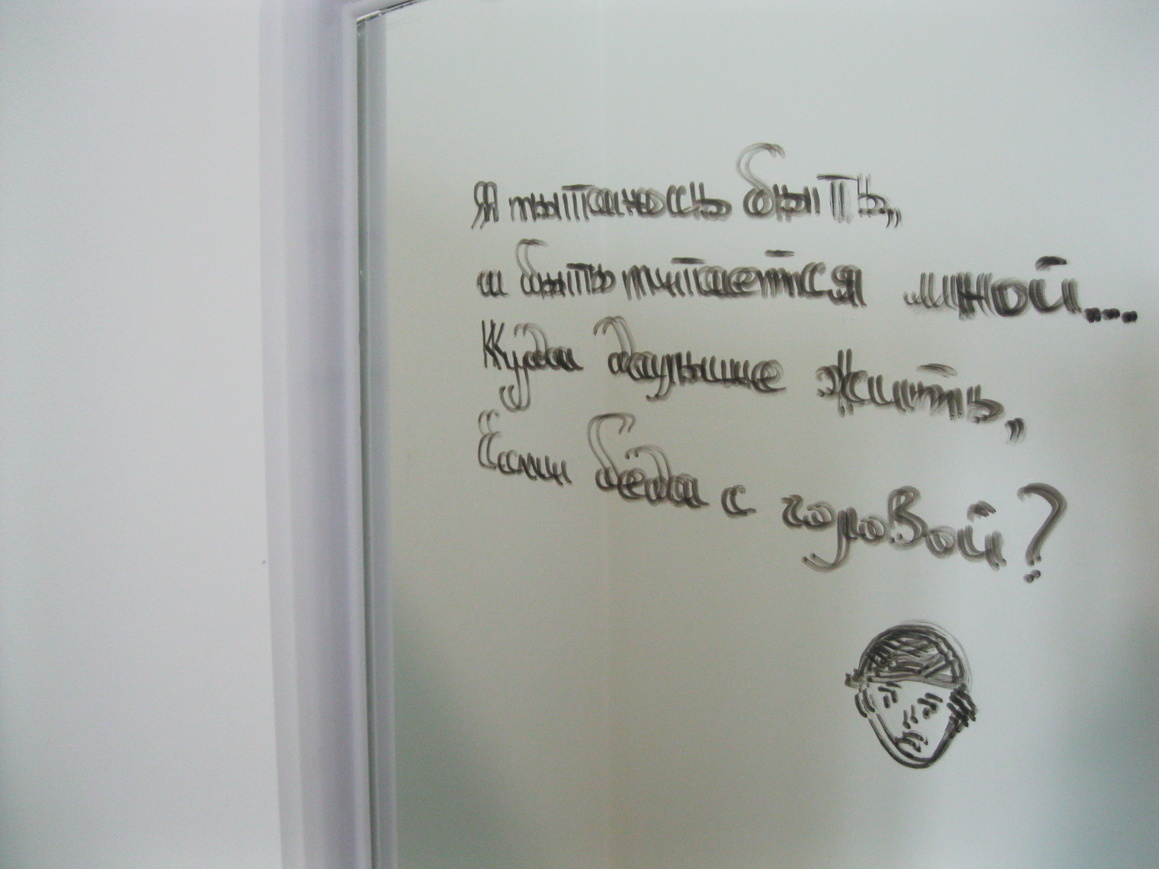 Я пытаюсь быть,
и быть пытается мной...
Куда дальше жить,
Если беда с головой?